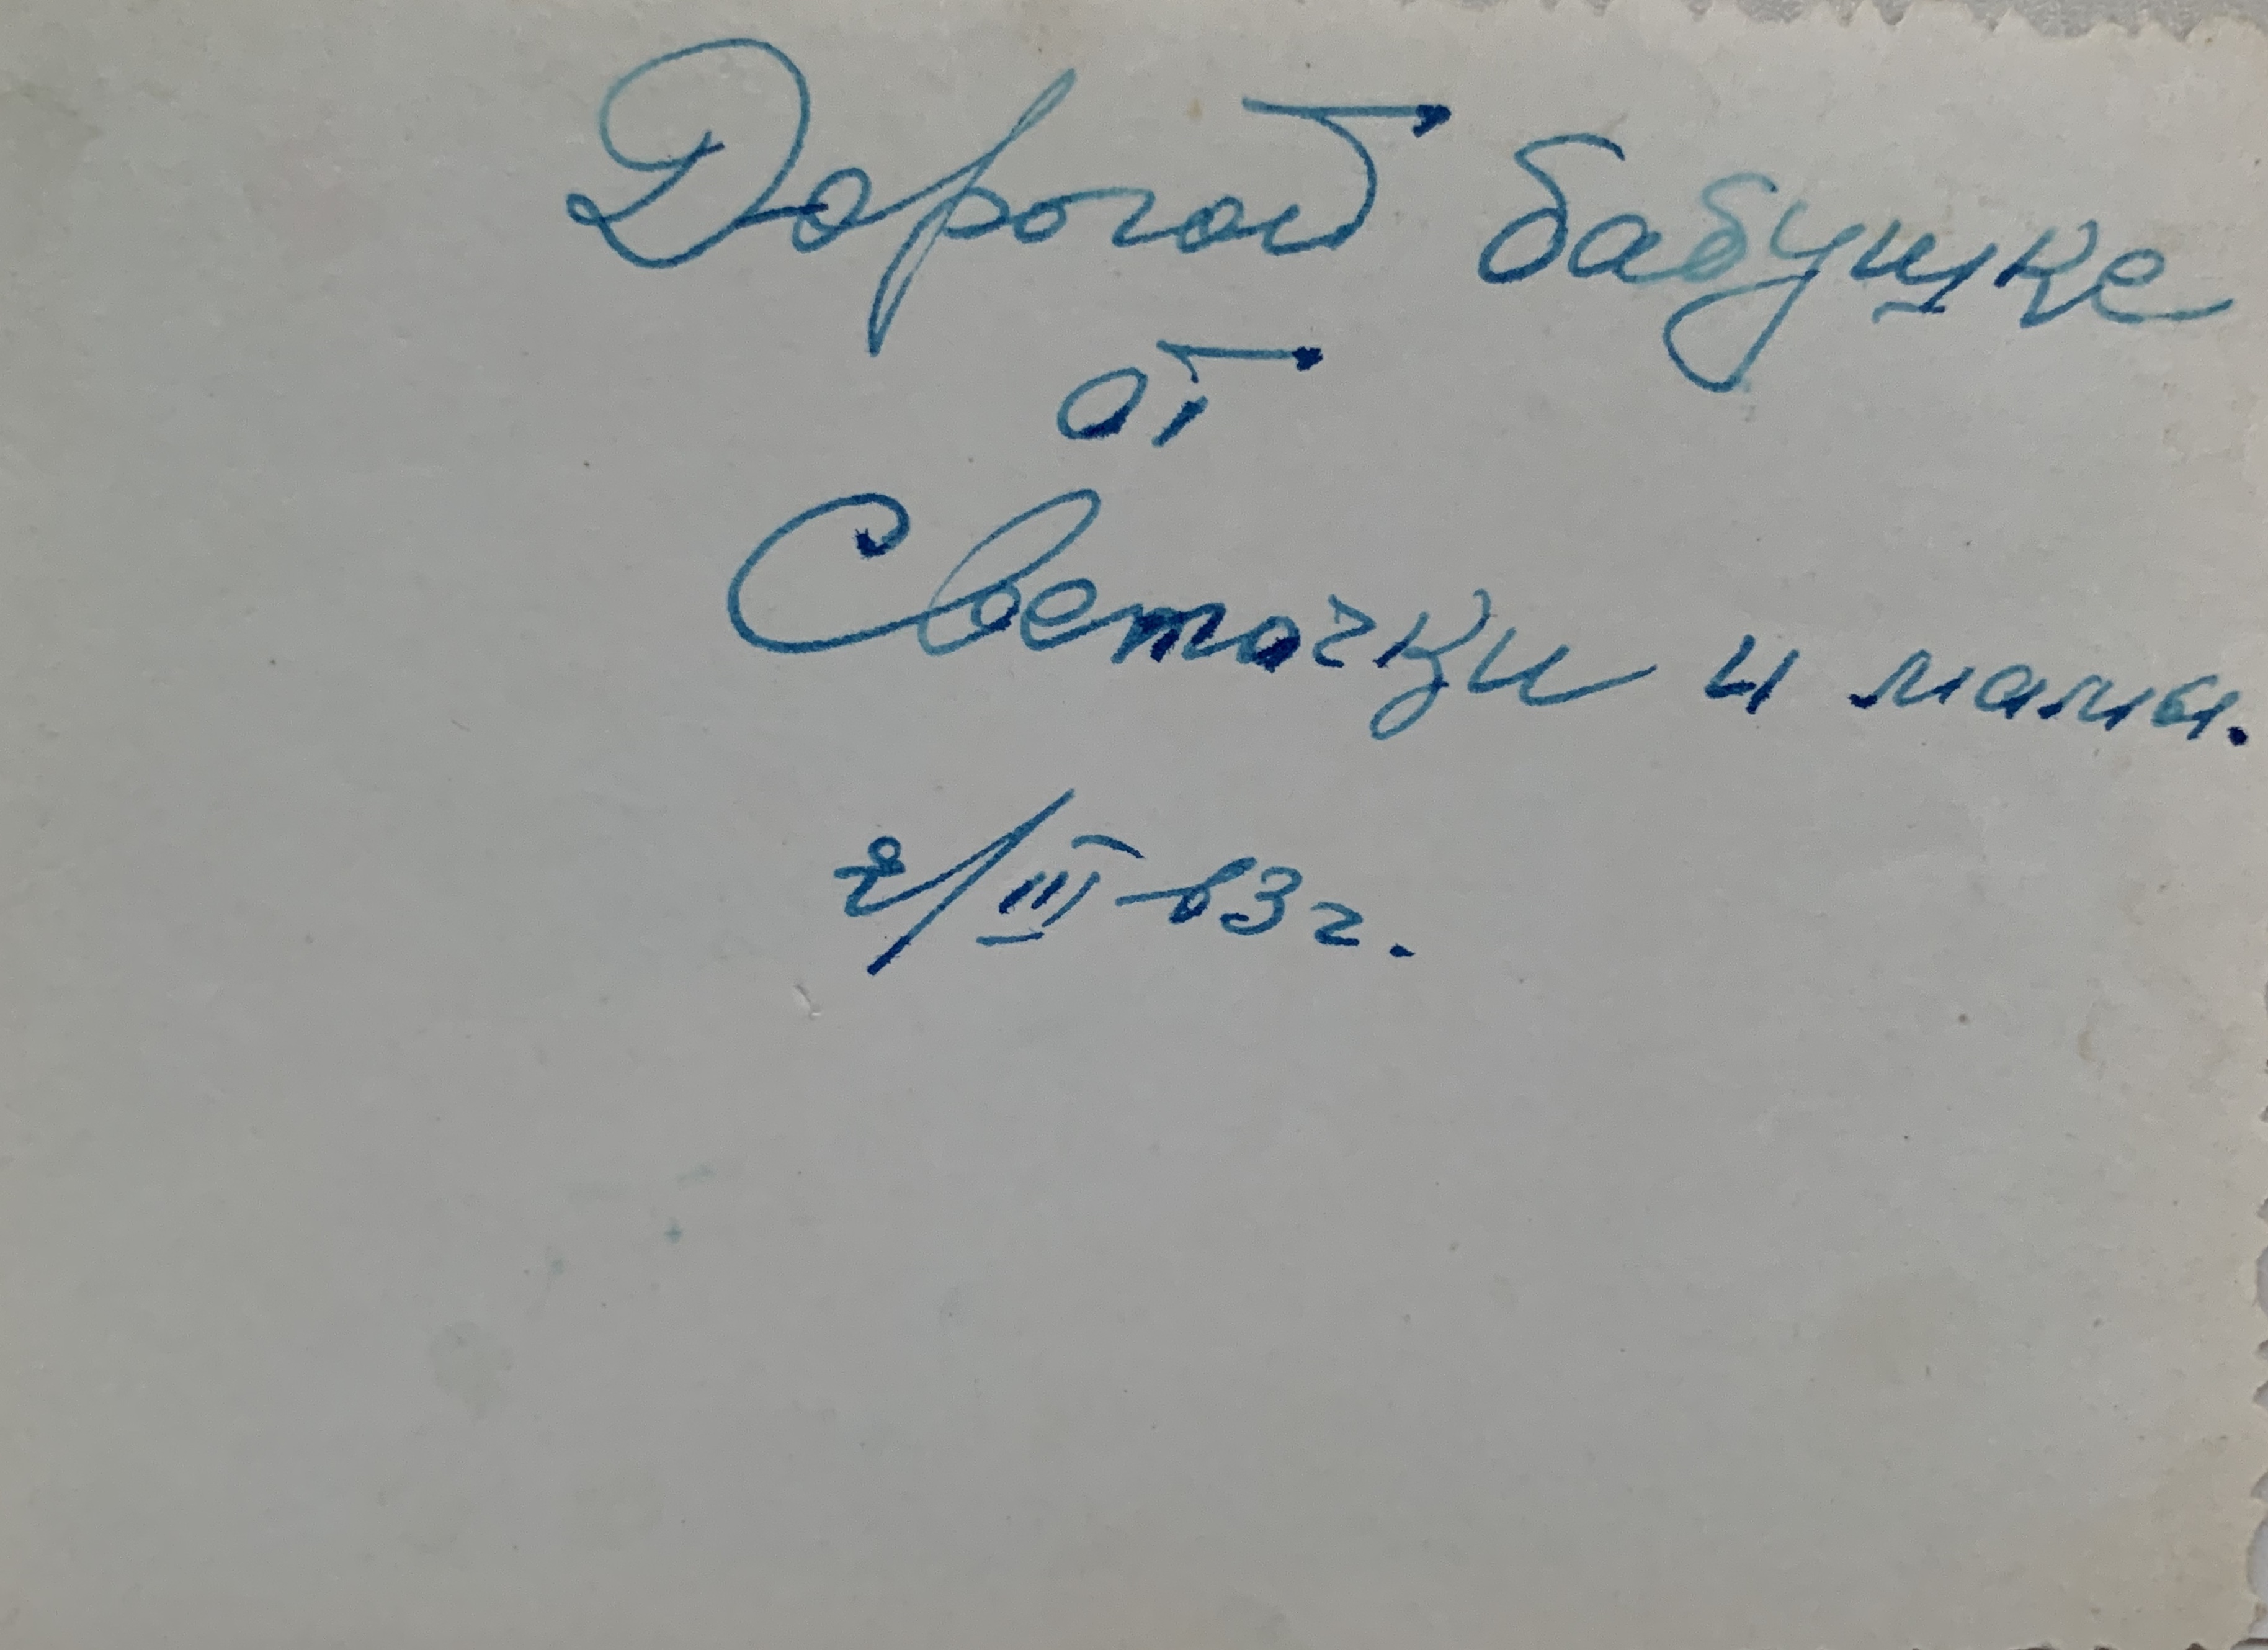 Дорогой бабушке
от
Светочки и мамы.
2/III-63 г.